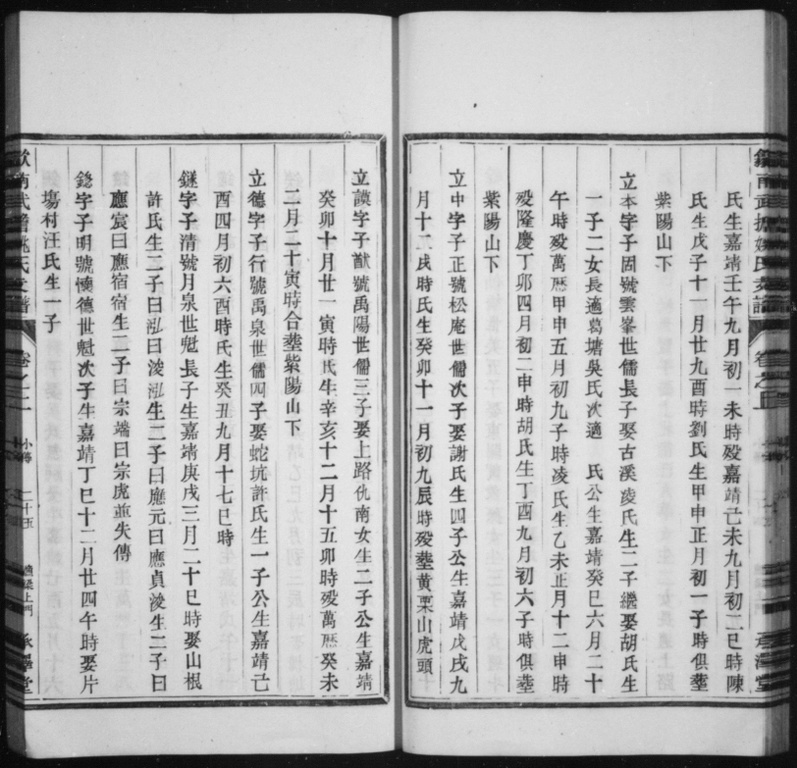 氏生嘉靖壬午九月初一未時殁嘉靖己未九月初二巳時陳
氏生戊子十一月廿九酉時劉氏生甲申正月初一子時俱塟
紫陽山下
立本字子固號雲峯世儒長子娶古溪凌氏生二子繼娶胡氏生
一子二女長適葛塘吳氏次適 氏公生嘉靖癸巳六月二十
午時殁萬曆甲申五月初九子時凌氏生乙未正月十二申時
殁隆慶丁卯四月初二申時胡氏生丁酉九月初六子時俱塟
紫陽山下
立中字子正號松庵世儒次子娶謝氏生四子公生嘉靖戊戌九
月十二戌時氏生癸卯十一月初九辰時殁塟黄栗山虎頭
立謨字子猷號禹陽世儒三子娶上路仇南女生二子公生嘉靖
癸卯十月廿一寅時氏生辛亥十二月十五卯時殁萬曆癸未
二月二十寅時合塟紫陽山下
立德字子行號禹泉世儒四子娶蛇坑許氏生一子公生嘉靖己
酉四月初六酉時氏生癸丑九月十七巳時
鐩字子清號月泉世魁長子生嘉靖庚戌三月二十巳時娶山根
許氏生二子曰泓曰浚泓生二子曰應元曰應貞浚生二子曰
應宸曰應宿宿生二子曰宗端曰宗虎並失傳
字子明號懷德世魁次子生嘉靖丁巳十二月廿四午時娶片
塲村汪氏生一子
歙南武擔姚氏支譜
卷之二
二十五
承澤堂